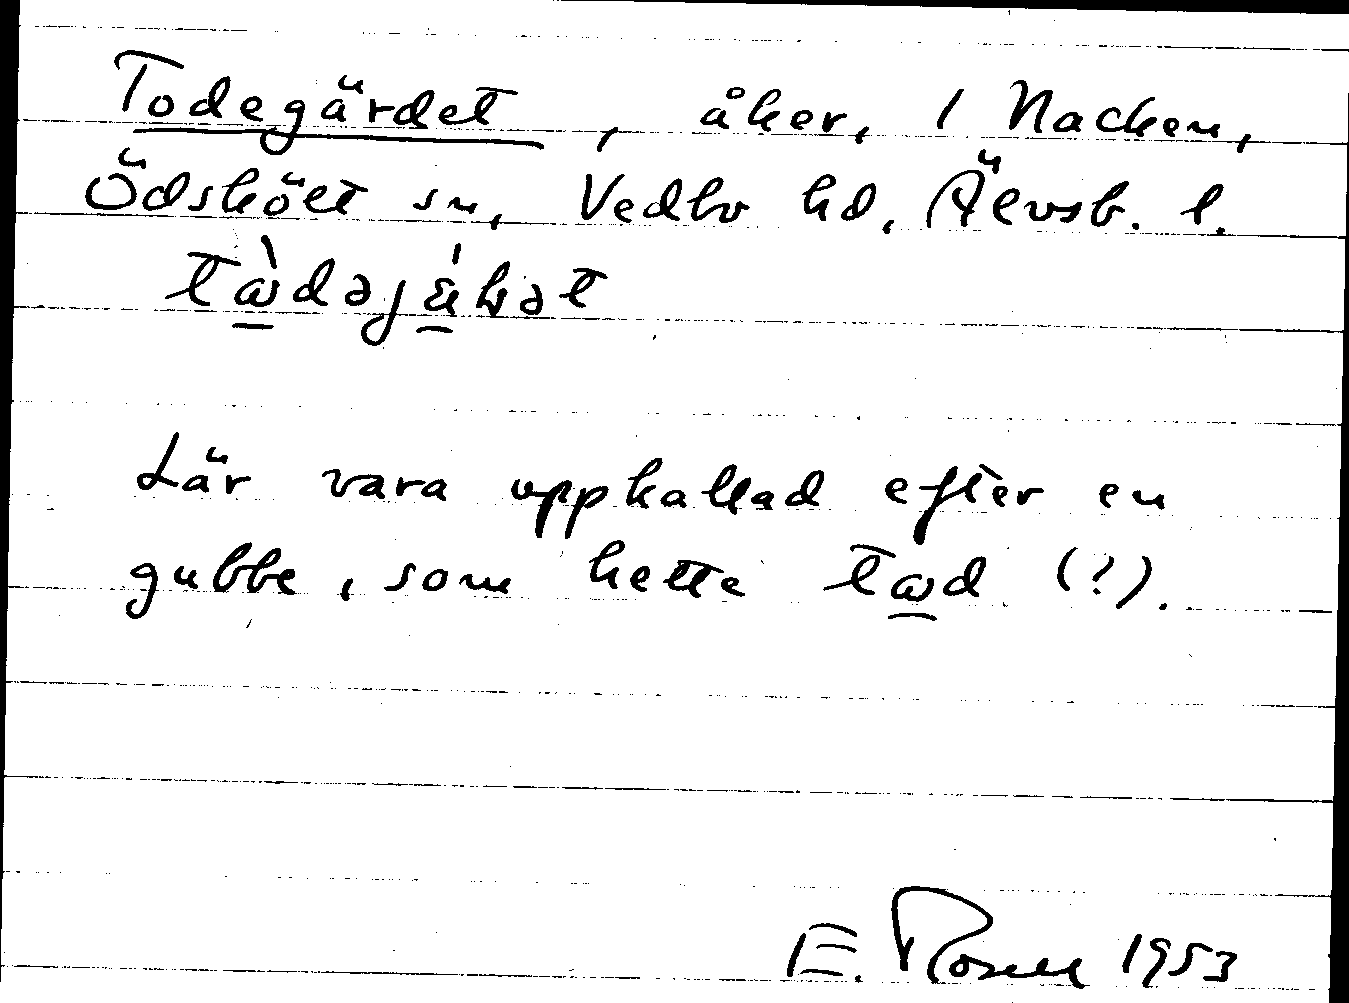 Todegärdet, åker, 1 Nacken,
Ödskölt sn, Vedbo hd, Älvsb. l.
Lär vara uppkallad efter en
gubbe, som hette tωd (?).
E. Rosell 1953